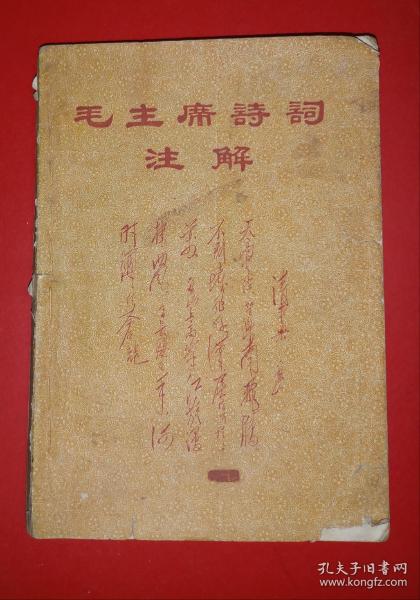 毛主席詩詞
注解
清平乐
天高云淡望断南飞雁
不到长城非好汉屈指行程
二万六盘山上高峰红旗漫
卷西风今日长缨在手何
时缚住苍龙
孔夫子旧书网
www.kongfz.com